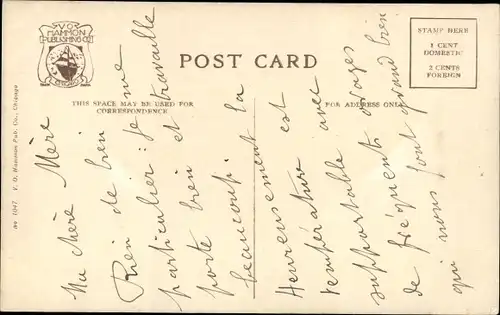 V.O. HAMMON PUBLISHING CO.
CHICAGO
POST CARD
THIS SPACE MAY BE USED FOR
CORRESPONDENCE
FOR ADDRESS ONLY
STAMP HERE
1 CENT
DOMESTIC
2 CENTS
FOREIGN
V. O. Hammon Pub. Co., Chicago
Ma chère Mère
Rien de bien
particulier: je me
porte bien et travaille
beaucoup. La
température est
Heureusement
supportable avec
de fréquents orages
qui nous font grand bien